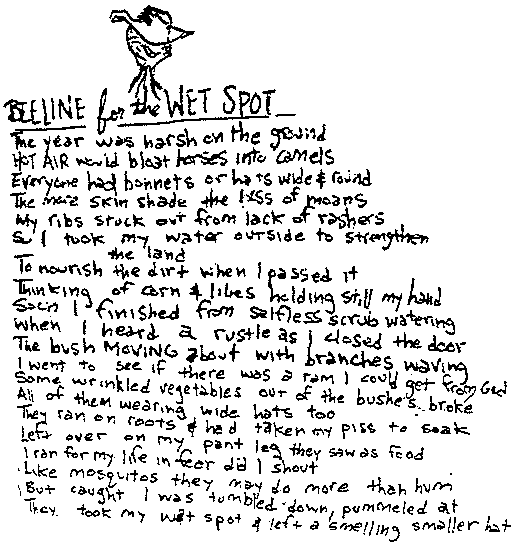 BEELINE for the WET SPOT
The year was harsh on the ground
HOT AIR would bloat horses into camels
Everyone had bonnets or hats wide & round
The more skin shade the less of moans
My ribs stuck out from lack of rashers
So I took my water outside to strengthen
the land
To nourish the dirt when I passed it
Thinking of corn & lilies holding still my hand
Soon I finished from selfless scrub watering
when I heard a rustle as I closed the door
The bush MOVING about with branches waving
I went to see if there was a ram I could get from God
Some wrinkled vegetables out of the bushes broke
All of them wearing wide hats too
They ran on roots & had taken my piss to soak
Left over on my pant leg they saw as food
I ran for my life in fear did I shout
Like mosquitos they may do more than hum
But caught I was tumbled down, pummeled at
They took my wet spot & left a smelling smaller hat